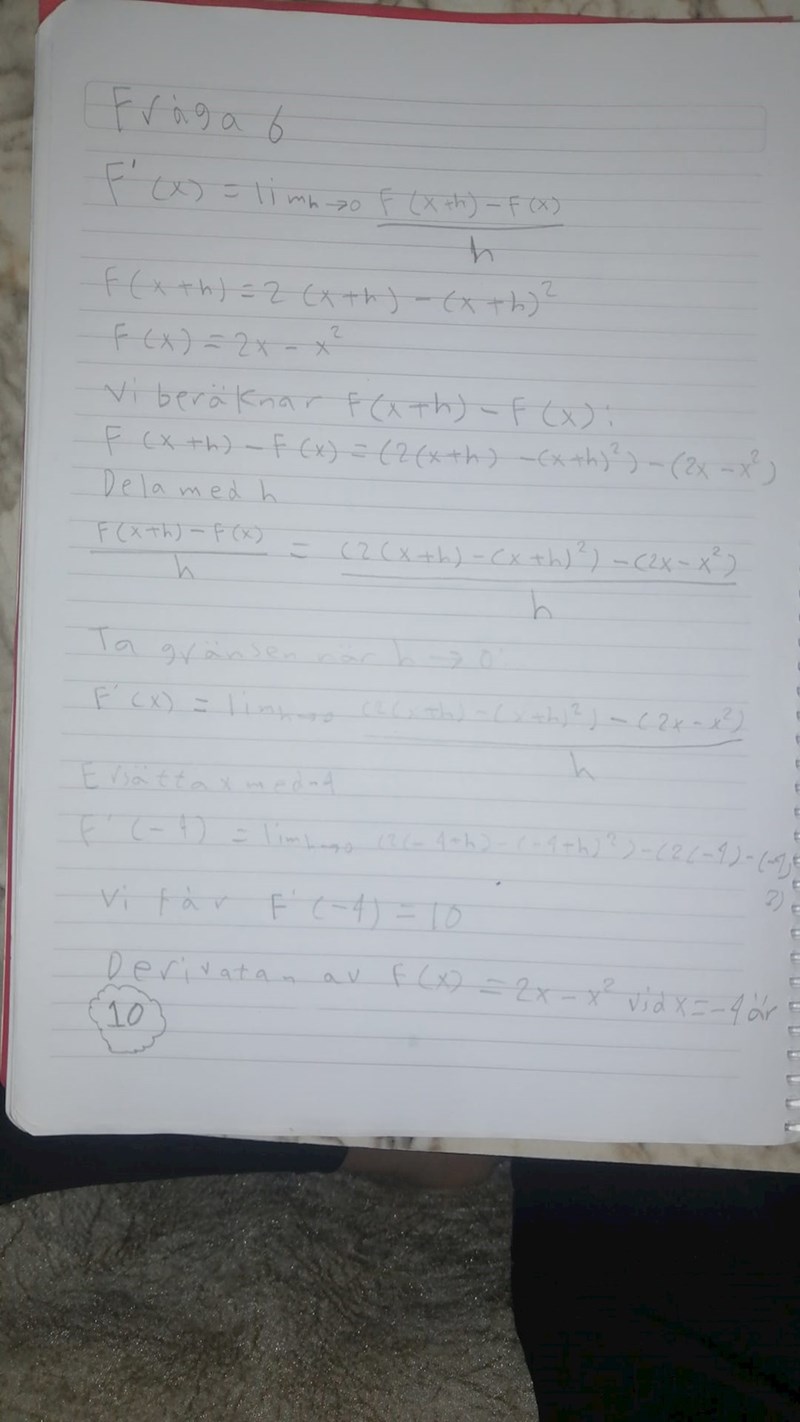 Fråga 6
F'(x) = lim h→0 F(x+h)-F(x)
h
F(x+h)=2(x+h)-(x+h)²
F(x)=2x-x²
Vi beräknar F(x+h)-F(x):
F(x+h)-F(x)=(2(x+h)-(x+h)²)-(2x-x²)
Dela med h
F(x+h)-F(x) = (2(x+h)-(x+h)²)-(2x-x²)
h h
Ta gränsen när h→0
F'(x) = lim h→0 (2(x+h)-(x+h)²)-(2x-x²)
h
Ersätta x med -4
F'(-4) = lim h→0 (2(-4+h)-(-4+h)²)-(2(-4)-(-4)
2)
Vi får F'(-4)=10
Derivatan av F(x)=2x-x² vid x=-4 är
10